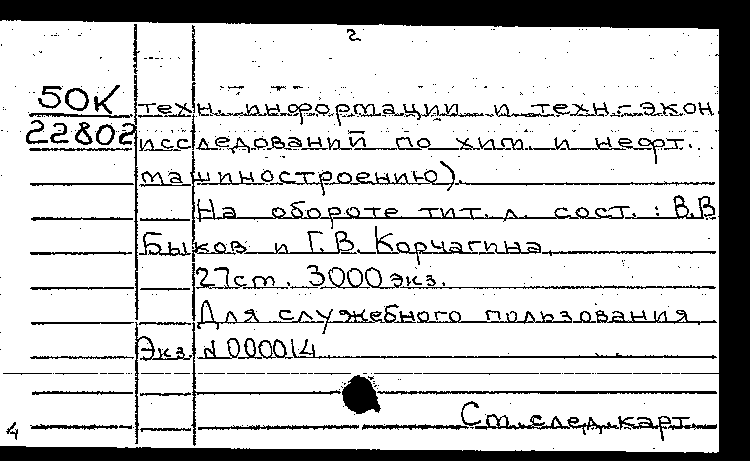 2
50К техн. информации и техн.-экон
22802 исследований по хим. и нефт.
машиностроению).
На обороте тит. л. сост.: В.В
Быков и Г.В. Корчагина.
27 см. 3000 экз.
Для служебного пользования
Экз. N 000014
См. след. карт.
4